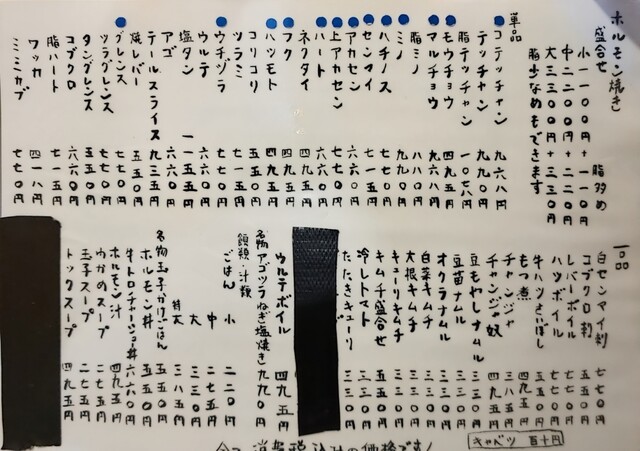 ホルモン焼き
盛合せ
小 一一〇〇円+一一〇円 脂多め
中 二二〇〇円+二二〇円
大 三三〇〇円+三三〇円
脂少なめもできます
単品
コテッチャン 九六八円
テッチャン 九九〇円
脂テッチャン 一〇七八円
モウチョウ 四九五円
マルチョウ 九六八円
脂ミノ 八八〇円
ミノ 九九〇円
ハチノス 七七〇円
センマイ 七一五円
アカセン 六六〇円
上アカセン 七七〇円
ハート 六六〇円
ネクタイ 四九五円
フク 四九五円
ハツモト 四九五円
コリコリ 五五〇円
ツラミ 七一五円
ウチヅラ 七七〇円
ウルテ 六六〇円
塩タン 一一五五円
アゴ 六六〇円
テールスライス 九三五円
焼レバー 五五〇円
グレンス 七七〇円
ツラグレンス 七七〇円
タングレンス 五五〇円
コブクロ 六六〇円
脂ハート 七一五円
ワッカ 四一八円
ミミカブ 七七〇円
一品
白センマイ刺 七七〇円
コブクロ刺 五五〇円
レバーボイル 七七〇円
ハツボイル 七七〇円
牛ハツさいぼし 五五〇円
もつ煮 四九五円
チャンジャ 三八五円
チャンジャ奴 四九五円
豆もやしナムル 三三〇円
豆苗ナムル 三三〇円
オクラナムル 三三〇円
白菜キムチ 三三〇円
大根キムチ 三三〇円
キューリキムチ 三三〇円
キムチ盛合せ 五五〇円
冷しトマト 三三〇円
たたきキューリ 三三〇円
ウルテボイル 四九五円
名物アゴツラねぎ塩焼き 九九〇円
飯類・汁類
ごはん 小 二二〇円
中 二七五円
大 三三〇円
特大 三八五円
名物玉子かけごはん 五五〇円
ホルモン丼 五五〇円
牛トロチャーシュー丼 六六〇円
ホルモン汁 四九五円
わかめスープ 二七五円
玉子スープ 二七五円
トックスープ 四九五円
キャベツ 百十円